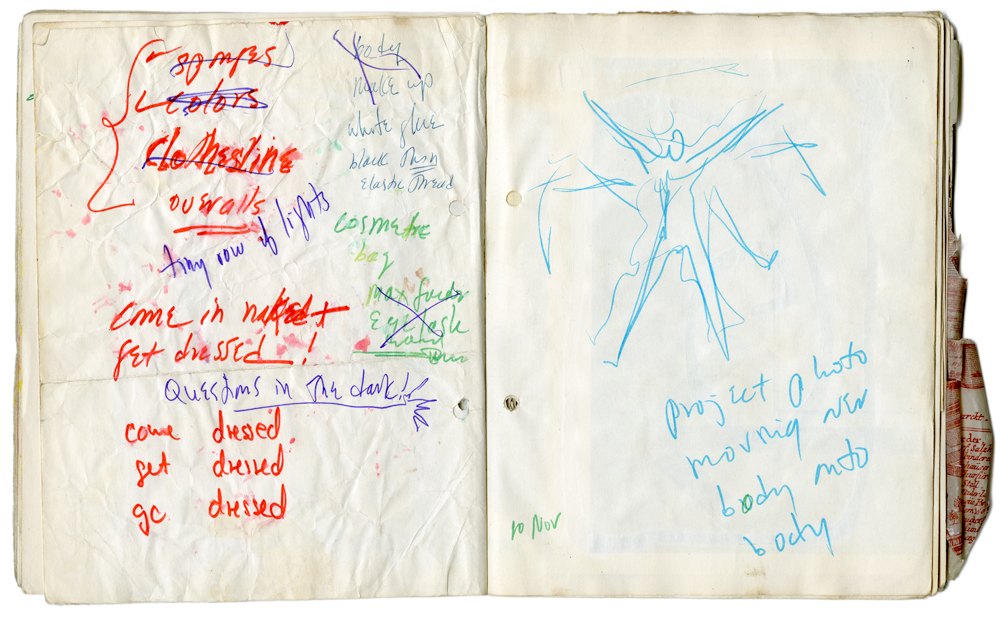 sponges
colors
clothesline
overalls
tiny row of lights
come in naked +
get dressed !
body
make up
white glue
black thin
elastic thread
cosmetic
bag
max factor
eye lash
Questions in the dark!!
come dressed
get dressed
go dressed
project photo
moving
body into
body
10 Nov